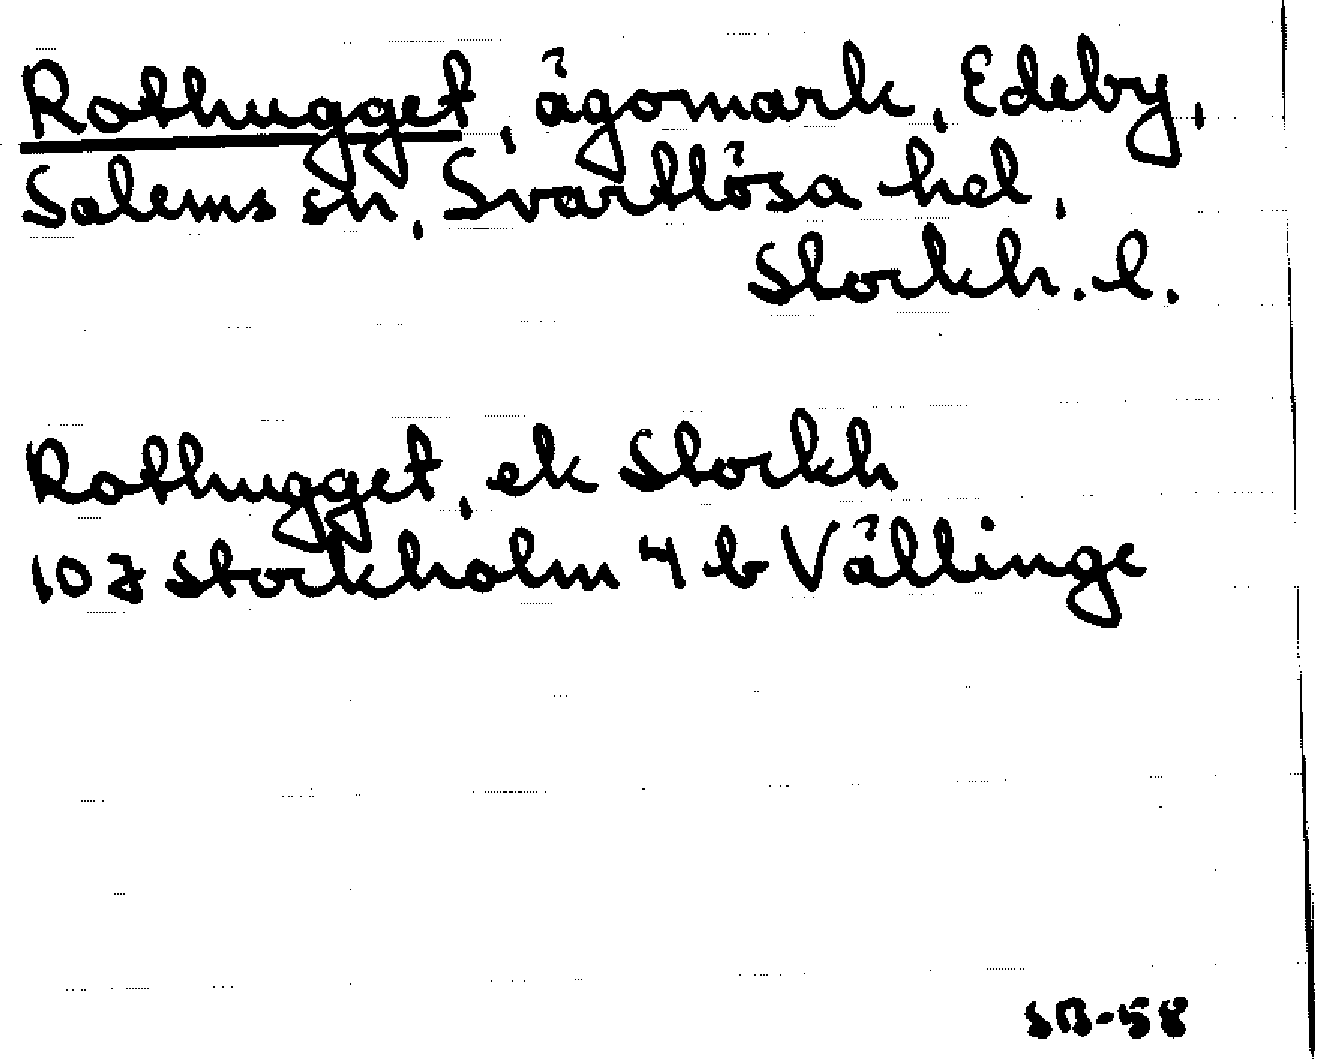 Rothugget, ägomark, Edeby,
Salems sn, Svartlösa hd,
Stockh. l.
Rothugget, ek Stockh
10 J Stockholm 4 b Vällinge
SB-58